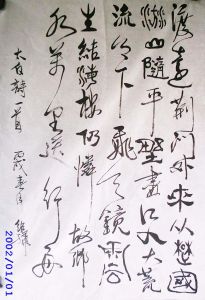 渡遠荆門外來從楚國
遊山隨平野盡江入大荒
流月下飛天鏡雲
生結海樓仍憐故鄉
水萬里送行舟
太白詩一首 丙戌春
2002/01/01